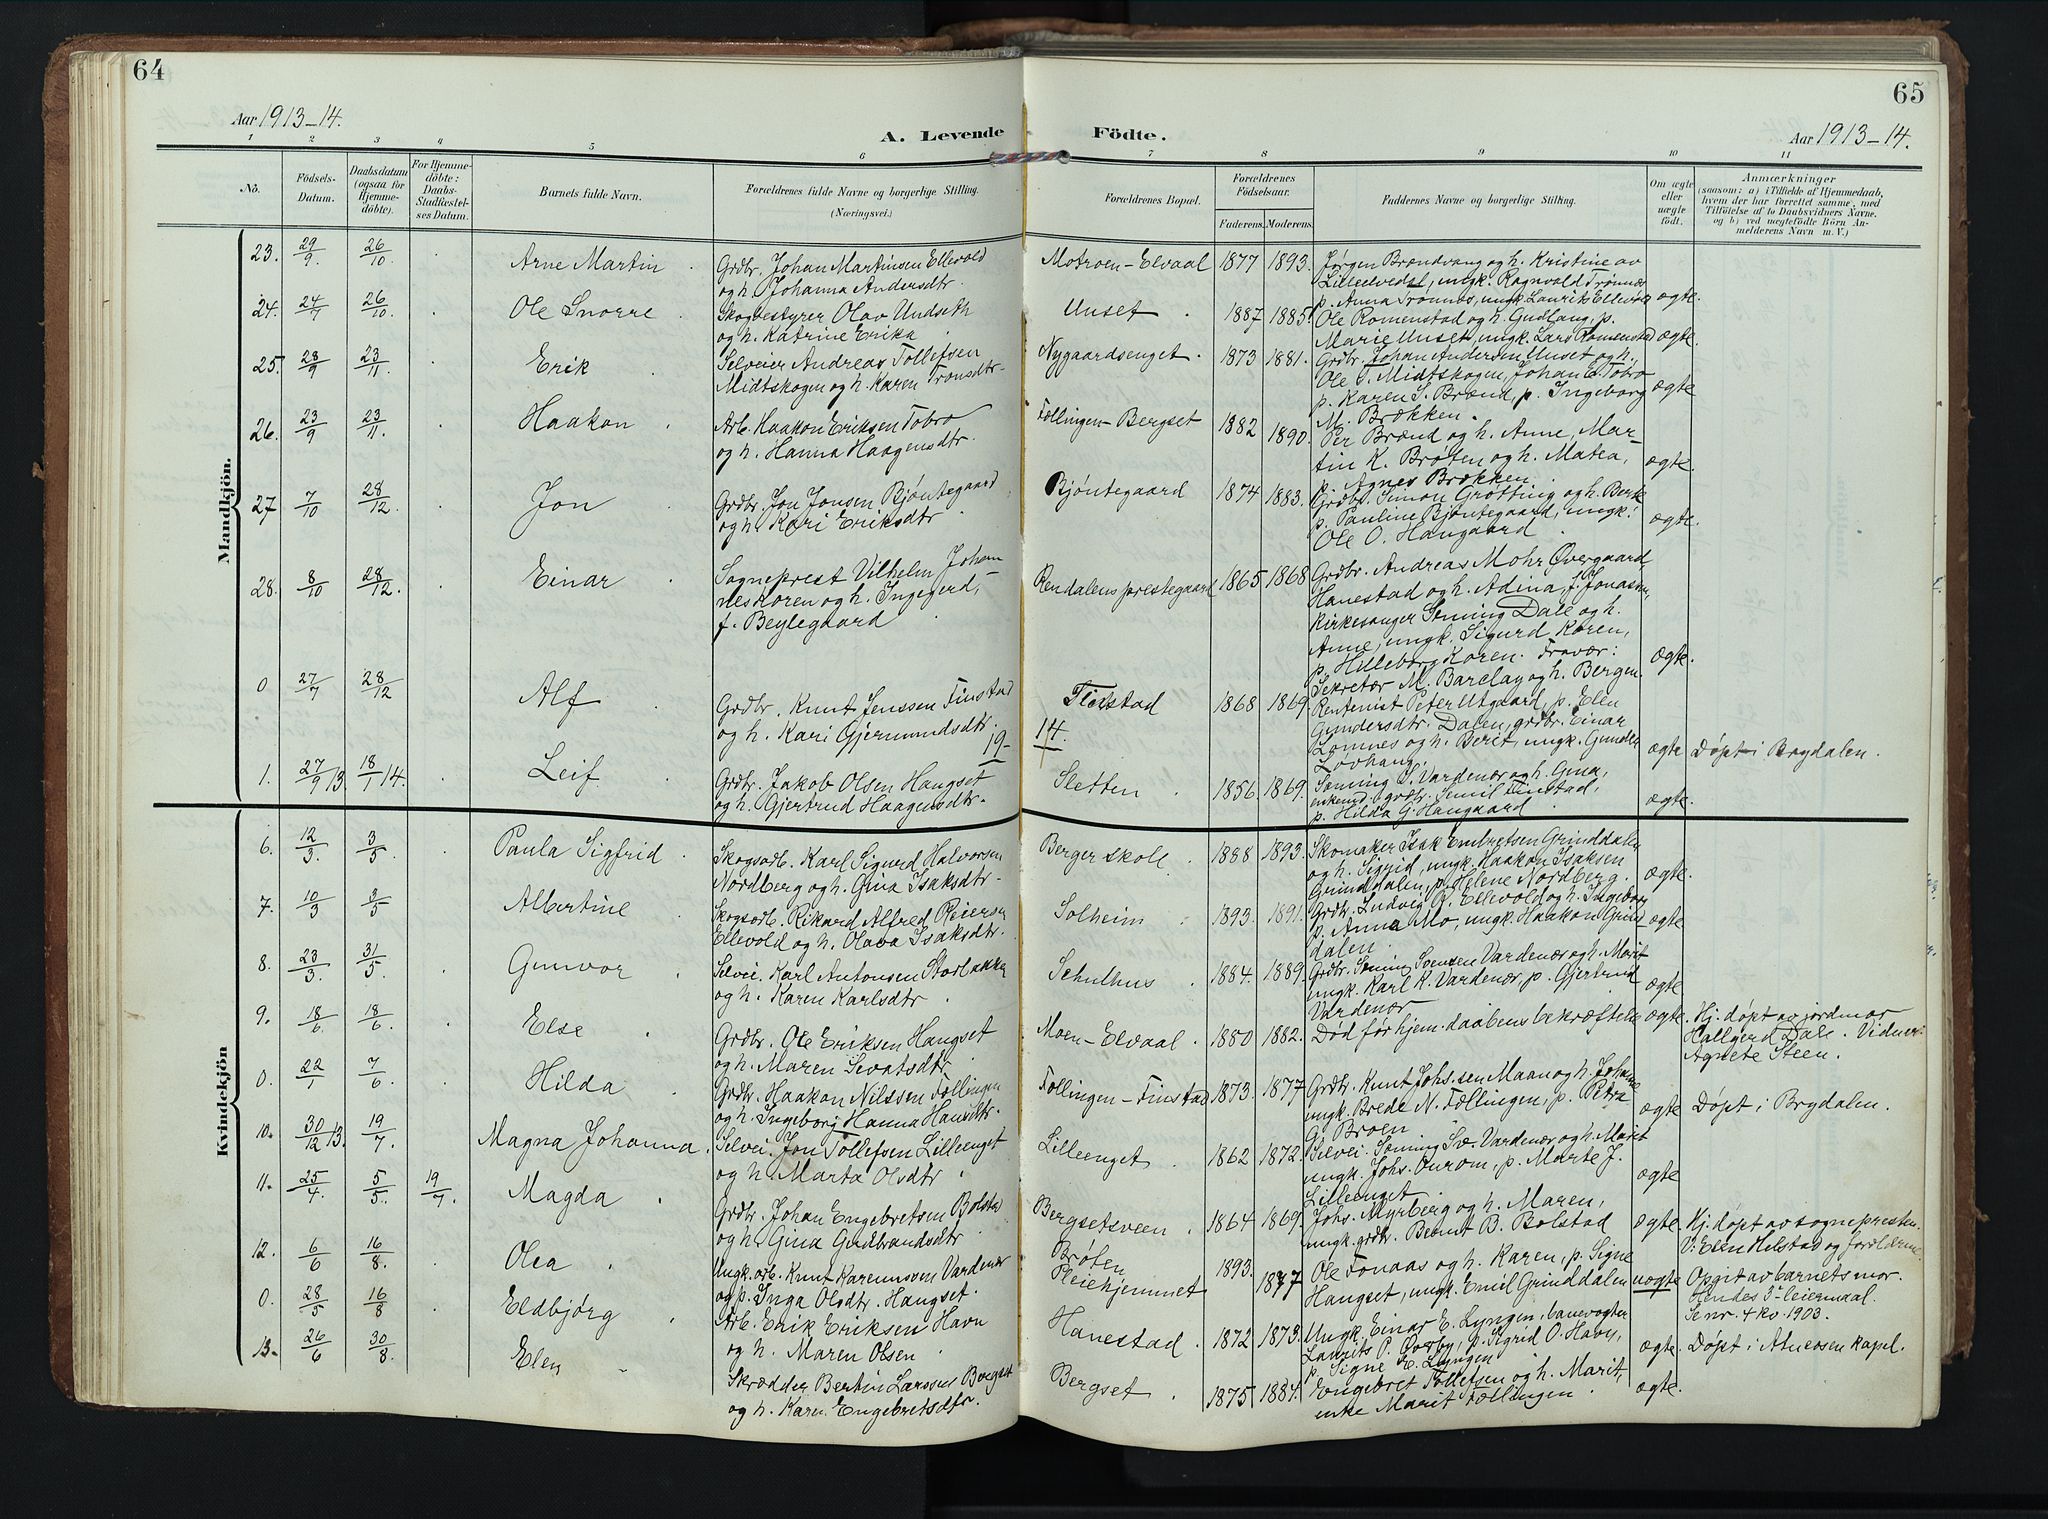 64
65
Aar 1913-14.
A. Levende
Födte.
Aar 1913-14.
1 2 3 4 5 6 7 8 9 10 11
No.
Födsels-
Datum.
Daabsdatum
(ogsaa for
Hjemme-
döbte).
For Hjemme-
döbte:
Daabs-
Stadfæstel-
ses Datum.
Barnets fulde Navn.
Forældrenes fulde Navne og borgerlige Stilling.
(Næringsvei.)
Forældrenes Bopæl.
Forældrenes
Födselsaar.
Faderens. Moderens.
Faddernes Navne og borgerlige Stilling.
Om ægte
eller
uægte
födt.
Anmærkninger
(saasom: a) i Tilfælde af Hjemmedaab,
hvem der har forrettet samme, med
Tilföielse af to Daabsvidners Navne,
og b) ved uægtefödte Börn An-
melderens Navn m. V.)
Mandkjön.
23. 29/9 26/10 Arne Martin
Grdbr. Johan Martinsen Ellevold
og h. Johanna Andersdtr.
Motroen-Elvaal 1877 1893.
Jørgen Brændvang og h. Kristine av
Lilleelvedal, ungk. Ragnvold Trønnæs
p. Anna Trønnes, ungk. Laurits Ellevold
ægte.
24. 24/7 26/10 Ole Snorre
Skogbestyrer Olav Undseth
og h. Katrine Erika
Unset 1887 1885.
Ole Romenstad og h. Gudlaug, p.
Marie Unset, ungk. Lars Romenstad
ægte.
25. 28/9 23/11 Erik
Selveier Andreas Tollefsen
Midtskogen og h. Karen Tronsdtr.
Nygaardsenget 1873 1881.
Grdbr. Johan Andersen Unset og h.,
Ole T. Midtskogen, Johan E. Tobro
p. Karen S. Brænd, p. Ingeborg
M. Brækken.
ægte
26. 23/9 23/11 Haakon
Arb. Haakon Eriksen Tobro
og h. Hanna Haagensdtr.
Follingen-Bergset 1882 1890.
Per Brænd og h. Anne, Mar-
tin K. Brøten og h. Matea,
p. Agnes Brækken.
ægte.
27 7/10 28/12 Jon
Grdbr. Jon Jonsen Bjøntegaard
og h. Kari Eriksdtr
Bjøntegaard 1874 1883.
Grdbr. Simon Grøtting og h. Berte
p. Pauline Bjøntegaard, ungk.
Ole O. Haugaard.
ægte.
28. 8/10 28/12. Einar
Sogneprest Vilhelm Johan
nes Koren og h. Ingegerd,
f. Beylegaard
Rendalens prestegaard 1865 1868
Grdbr. Andreas Mohr Øvergaard
Hanestad og h. Adina, f. Jonassen,
Kirkesanger Sening Dale og h.
Anne, ungk. Sigurd Koren,
p. Hilleborg Koren. Fravær:
Sekretær M. Barclay og h. Bergen
ægte.
0 27/7 28/12 Alf
Grdbr. Knut Jenssen Finstad
og h. Kari Gjermundsdtr.
Finstad 1868 1869
Rentenist Peter Utgaard, p. Elen
Gundersdtr. Dalen, grdbr. Einar
Lomnes og h. Berit, ungk. Gunder
Lovhaug.
ægte Døpt i Brydalen.
19-
14.
1. 27/9 13. 18/1 14. Leif
Grdbr. Jakob Olsen Hangset
og h. Gjertrud Haagensdtr.
Sletten 1856 1869.
Sening S. Vardenær og h. Gina,
enkemd. grdbr. Semil Finstad,
p. Hilda G. Haugaard
ægte.
Kvindekjön
6. 12/3. 3/5 Paula Sigfrid
Skogsarb. Karl Sigurd Halvorsen
Nordberg og h. Gina Isaksdtr.
Berger skole 1888 1893.
Skomaker Isak Embretsen Grinddalen
og h. Sigfrid, ungk. Haakon Isaksen
Grinddalen, p. Helene Nordberg.
ægte.
7. 10/3 3/5 Albertine
Skogsarb. Rikard Alfred Reiersen
Ellevold og h. Olava Isaksdtr.
Solheim 1893. 1891.
Grdbr. Ludvig R. Ellevold og h. Ingeborg
p. Anna Mo, ungk. Haakon Grind
dalen.
ægte
8. 23/3. 31/5 Gunvor
Selvei. Karl Antonsen Storbakken
og h. Karen Karlsdtr
Schulhus 1884. 1889.
Grdbr. Sening Svensen Vardenær og h. Marit
ungk. Karl K. Vardenær, p. Gjertrud
Vardenær
ægte
9. 18/6 18/6. Else
Grdbr. Ole Eriksen Hangset
og h. Maren Sevatsdtr
Moen-Elvaal 1880 1882.
Død før hjem. daabens bekræftelse
ægte. Hj. døpt av jordmor
Hallgerd Dale. Vidner:
Agnete Steen.
0. 22/1 7/6 Hilda
Grdbr. Haakon Nilssen Follingen
og h. Ingeborg Hanna Hansdtr.
Follingen-Finstad 1873. 1877
Grdbr. Knut Johs.sen Maan og h. Johanne
ungk. Brede N. Føllingen, p. Petra
G. Broen
ægte Døpt i Brydalen.
10. 30/12 13. 19/7. Magna Johanna.
Selvei. Jon Tollefsen Lilleenget
og h. Marta Olsdtr
Lilleenget 1862 1872.
Selvei. Sening Sv. Vardenær og h. Marit
ungk. Johs. Aurom, p. Marte J.
Lilleenget.
ægte
11. 25/4. 5/5. 19/7. Magda
Grdbr. Johan Engebretsen Bolstad
og h. Gina Gudbrandsdtr
Bergsetsveen 1864 1869.
Johs. Myrberg og h. Maren,
ungk. grdbr. Bernt B. Bolstad
ægte. Hj. døpt av sognepresten.
V: Elen Hilstad og forældrene.
12. 6/6 16/8. Olea
Ungk. arb. Knut Karenussen Vardenær
og p. Inga Olsdtr. Hangset.
Brøten
Pleiehjemmet 1893. 1877
Ole Fonaas og h. Karen, p. Signe
Hangset, ungk. Emil Grinddalen
uægte Opgit av barnets mor.
Hendes 3die leiermaal.
Se nr. 4 kv. 1903.
0. 28/5 16/8 Eldbjørg
Arb. Erik Eriksen Havn
og h. Maren Olsen
Hanestad 1872 1873.
Ungk. Einar E. Lyngen, banevogter
Laurits P. Øvsby, p. Sigrid O. Havn,
p. Signe E. Lyngen
ægte. Døpt i Atneosen kapel.
13. 26/6 30/8. Elen
Skrædder Bertin Larssen Bergset
og h. Karen Engebretsdtr.
Bergset 1875 1884.
Engebret Tollefsen og h. Marit,
enke Marit Føllingen
ægte.